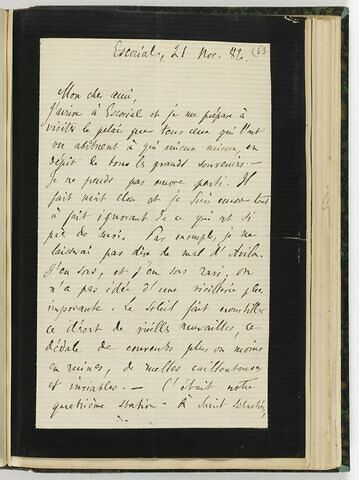 Escorial, 21 Nov. 82. 63
Mon cher ami,
J'arrive à Escorial et je me prépare à
visiter le palais que tous ceux qui l'ont
vu abîment à qui mieux mieux, en
dépit de tous les grands souvenirs. —
Je ne prends pas encore parti. Il
fait nuit close et je suis encore tout
à fait ignorant de ce qui est si
près de moi. Par exemple, je ne
laisserai pas dire de mal d'Avila.
J'en sors, et j'en sors ravi, on
n'a pas idée d'une vieillerie plus
imposante. Le soleil fait croustiller
ce désert de vieilles murailles, ce
dédale de couvents plus ou moins
en ruines, de ruelles caillouteuses
et — C'était notre
quatrième station — à Saint Sébastien,